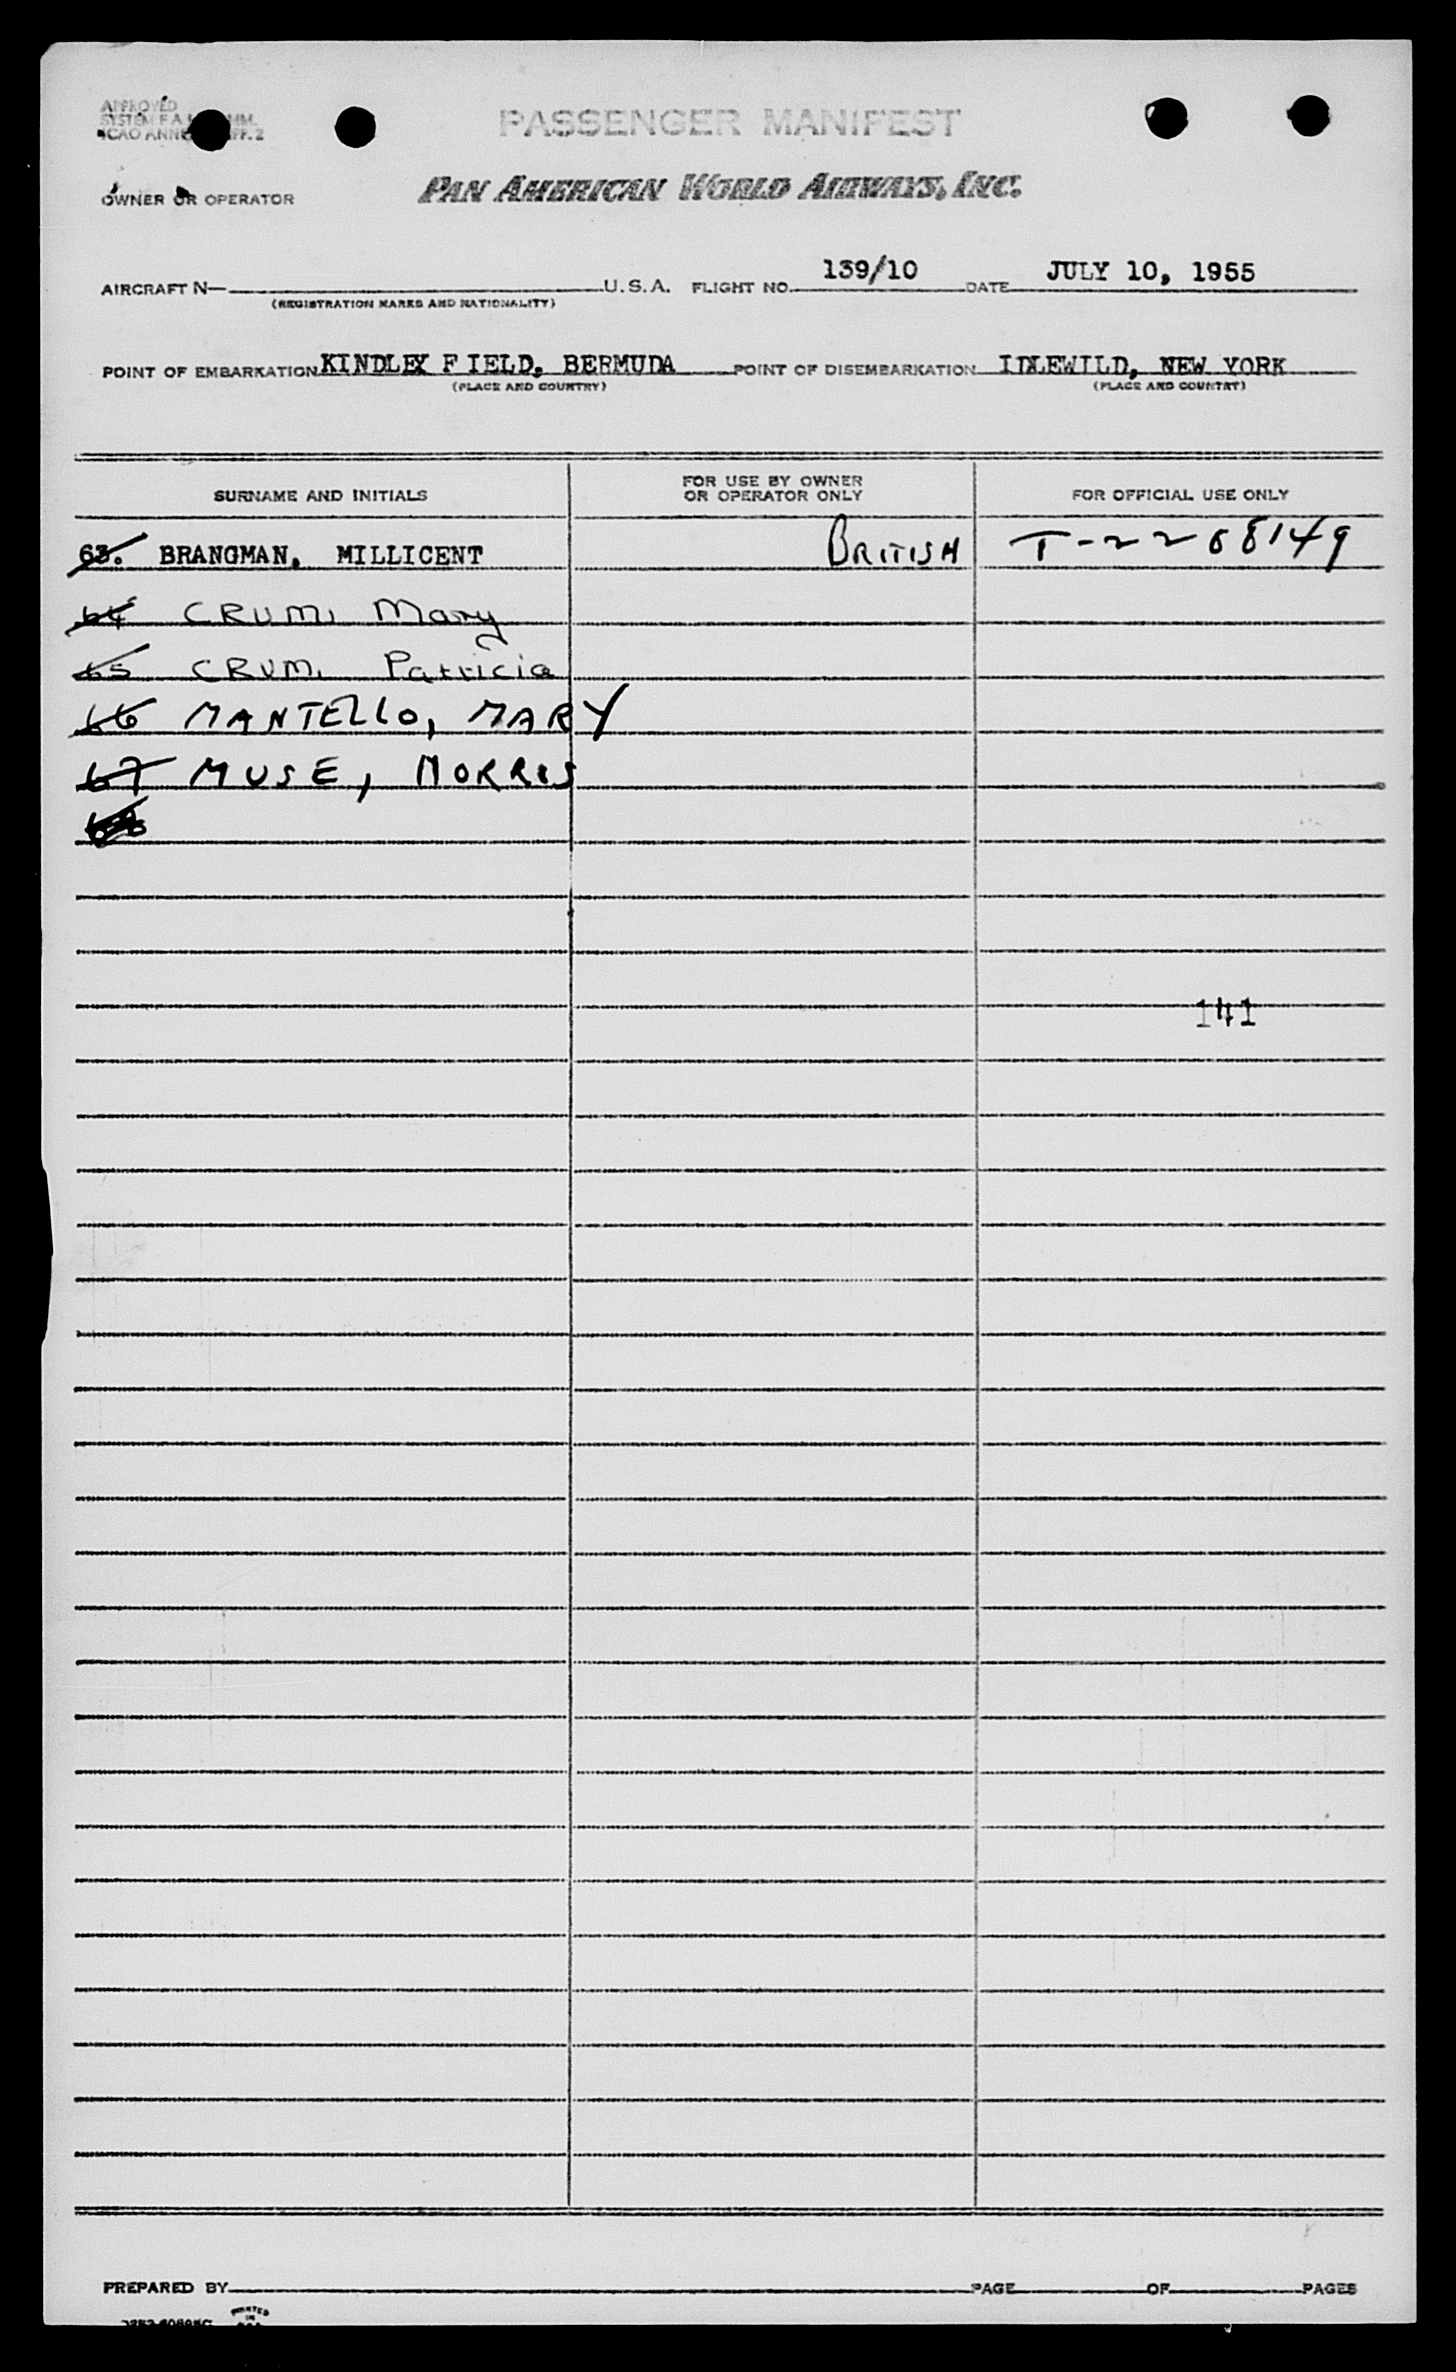 APPROVED
SYSTEM F.A.L. COMM.
ICAO ANNEX APP. 2
PASSENGER MANIFEST
OWNER OR OPERATOR PAN AMERICAN WORLD AIRWAYS, INC.
AIRCRAFT N— U.S.A. FLIGHT NO. 139/10 DATE JULY 10, 1955
(REGISTRATION MARKS AND NATIONALITY)
POINT OF EMBARKATION KINDLEY FIELD, BERMUDA POINT OF DISEMBARKATION IDLEWILD, NEW YORK
(PLACE AND COUNTRY) (PLACE AND COUNTRY)
SURNAME AND INITIALS FOR USE BY OWNER OR OPERATOR ONLY FOR OFFICIAL USE ONLY
63. BRANGMAN, MILLICENT BRITISH T-2268149
64 CRUM, Mary
65 CRUM, Patricia
66 MANTELLO, MARY
67 MUSE, MORRIS
68
141
PREPARED BY PAGE OF PAGES
PRINTED IN U.S.A.